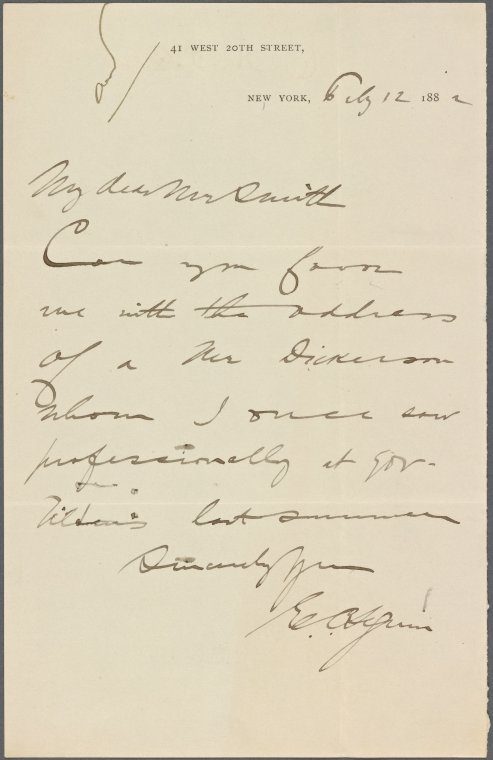 41 WEST 20TH STREET,
NEW YORK, Feby 12 1882
My dear Mr Smith
Can you favor
me with the address
of a Mr Dickerson
whom I once saw
professionally at Gov-
Tilden's last summer
Sincerely Yours
E. C. Seguin